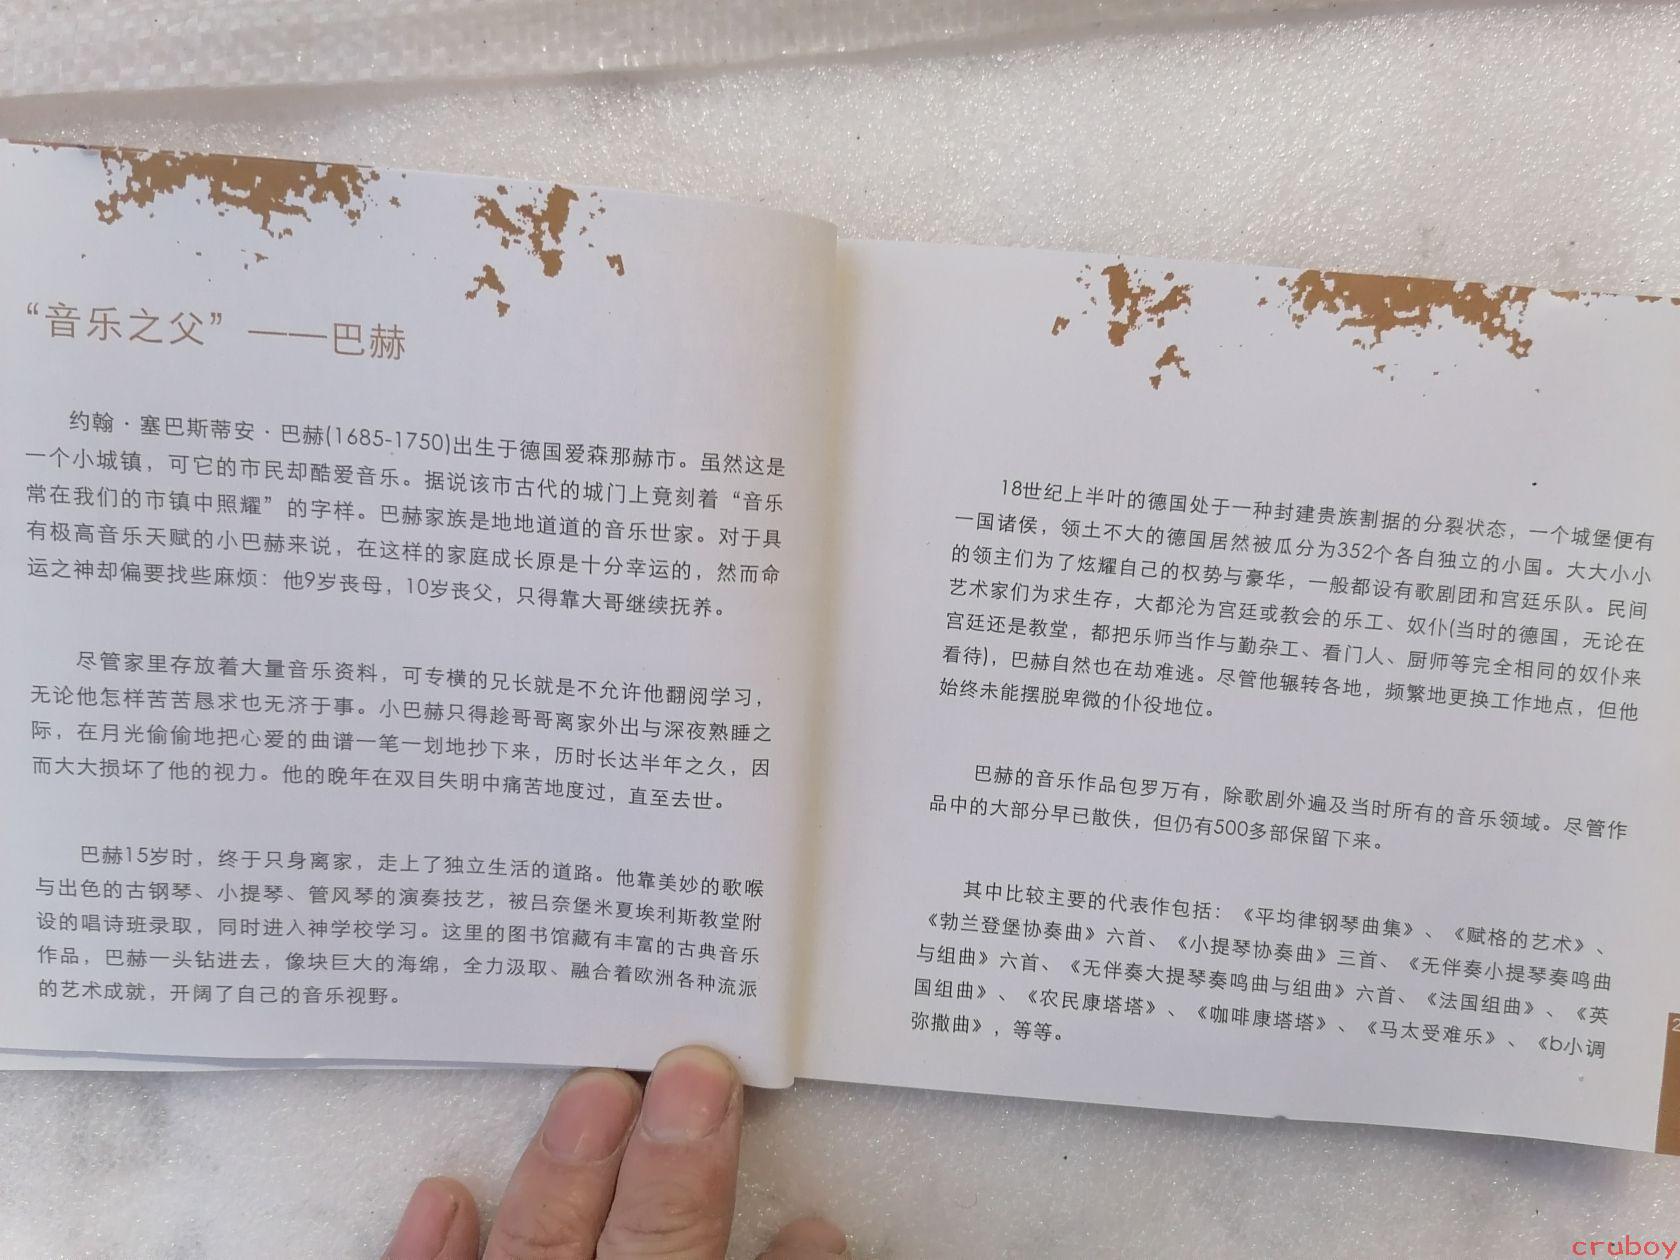 “音乐之父”——巴赫
约翰·塞巴斯蒂安·巴赫(1685-1750)出生于德国爱森那赫市。虽然这是
一个小城镇，可它的市民却酷爱音乐。据说该市古代的城门上竟刻着“音乐
常在我们的市镇中照耀”的字样。巴赫家族是地地道道的音乐世家。对于具
有极高音乐天赋的小巴赫来说，在这样的家庭成长原是十分幸运的，然而命
运之神却偏要找些麻烦：他9岁丧母，10岁丧父，只得靠大哥继续抚养。
尽管家里存放着大量音乐资料，可专横的兄长就是不允许他翻阅学习，
无论他怎样苦苦恳求也无济于事。小巴赫只得趁哥哥离家外出与深夜熟睡之
际，在月光偷偷地把心爱的曲谱一笔一划地抄下来，历时长达半年之久，因
而大大损坏了他的视力。他的晚年在双目失明中痛苦地度过，直至去世。
巴赫15岁时，终于只身离家，走上了独立生活的道路。他靠美妙的歌喉
与出色的古钢琴、小提琴、管风琴的演奏技艺，被吕奈堡米夏埃利斯教堂附
设的唱诗班录取，同时进入神学校学习。这里的图书馆藏有丰富的古典音乐
作品，巴赫一头钻进去，像块巨大的海绵，全力汲取、融合着欧洲各种流派
的艺术成就，开阔了自己的音乐视野。
18世纪上半叶的德国处于一种封建贵族割据的分裂状态，一个城堡便有
一国诸侯，领土不大的德国居然被瓜分为352个各自独立的小国。大大小小
的领主们为了炫耀自己的权势与豪华，一般都设有歌剧团和宫廷乐队。民间
艺术家们为求生存，大都沦为宫廷或教会的乐工、奴仆(当时的德国，无论在
宫廷还是教堂，都把乐师当作与勤杂工、看门人、厨师等完全相同的奴仆来
看待)，巴赫自然也在劫难逃。尽管他辗转各地，频繁地更换工作地点，但他
始终未能摆脱卑微的仆役地位。
巴赫的音乐作品包罗万有，除歌剧外遍及当时所有的音乐领域。尽管作
品中的大部分早已散佚，但仍有500多部保留下来。
其中比较主要的代表作包括：《平均律钢琴曲集》、《赋格的艺术》、
《勃兰登堡协奏曲》六首、《小提琴协奏曲》三首、《无伴奏小提琴奏鸣曲
与组曲》六首、《无伴奏大提琴奏鸣曲与组曲》六首、《法国组曲》、《英
国组曲》、《农民康塔塔》、《咖啡康塔塔》、《马太受难乐》、《b小调
弥撒曲》，等等。
2
cruboy